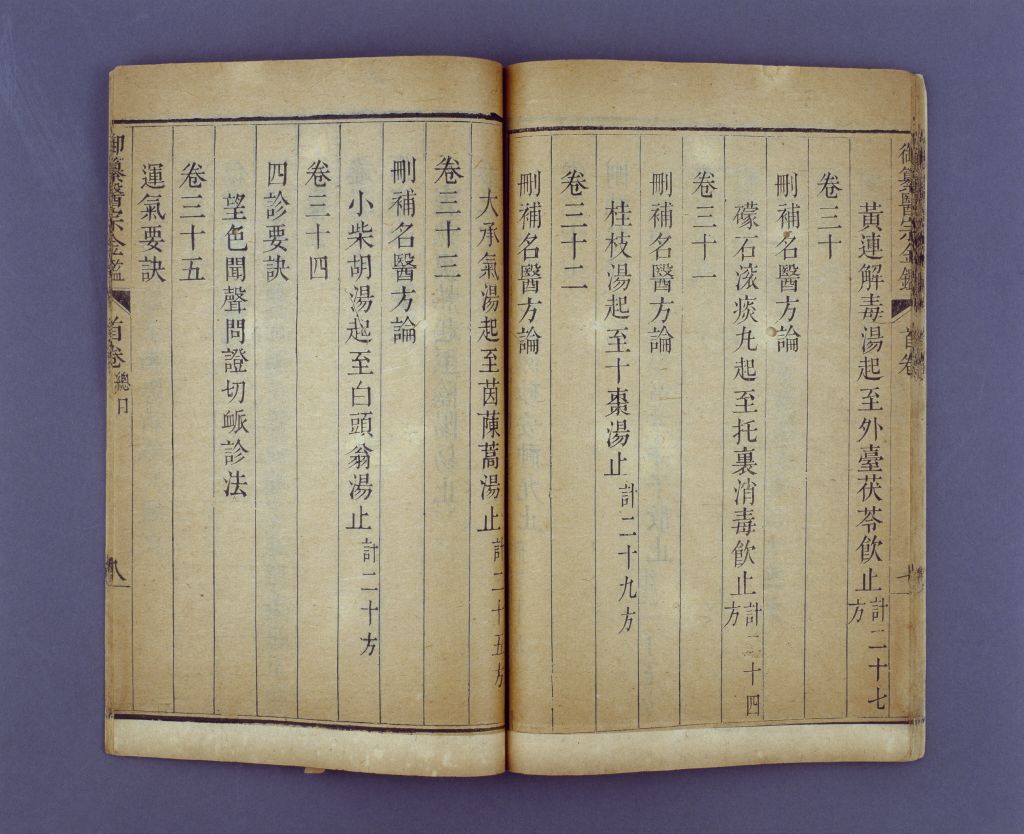 黃連解毒湯起至外臺茯苓飮止計二十七方
卷三十
刪補名醫方論
礞石滚痰丸起至托裏消毒飮止計二十四方
卷三十一
刪補名醫方論
桂枝湯起至十棗湯止計二十九方
卷三十二
刪補名醫方論
大承氣湯起至茵蔯蒿湯止計二十五方
卷三十三
刪補名醫方論
小柴胡湯起至白頭翁湯止計二十方
卷三十四
四診要訣
望色聞聲問證切衇診法
卷三十五
運氣要訣
御纂醫宗金鑑
首卷 總目
八
御纂醫宗金鑑
首卷